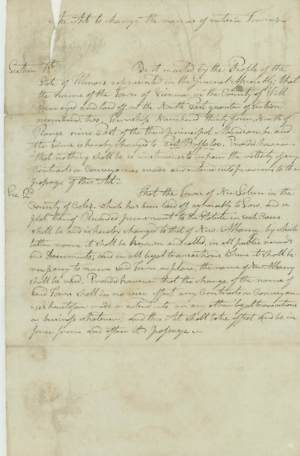 An Act to change the names of certain Towns
Section 1st Be it enacted by the People of the
State of Illinois represented in the General Assembly that
the name of the Town of Vienna, in the County of Will
Surveyed and laid off at the North East quarter of Section
numbered two, Township Numbered Thirty four North of
Range nine East of the third principal Meridian, be and
the same is hereby changed to East Buffalo. Provided however
that nothing shall be so construed as to impair the validity of any
Contracts or Conveyances made or entered into previous to the
passage of this Act.
Sec 2d That the Town of New Salem in the
County of Coles, which has been laid off and a
plat thereof Recorded pursuant to the Statute in such Cases
shall be and is hereby changed to that of New Albany, by which
latter name it shall be known and called, in all public records
and documents; and in all legal transactions where it shall be
necessary to name said Town or place, the name of New Albany
shall be used. Provided however that the change of the name of
said Town shall in no wise affect any Contracts or Conveyan
ces heretofore made or entered into or any other legal transactions
or business whatever, and this Act shall take effect and be in
force from and after its passage